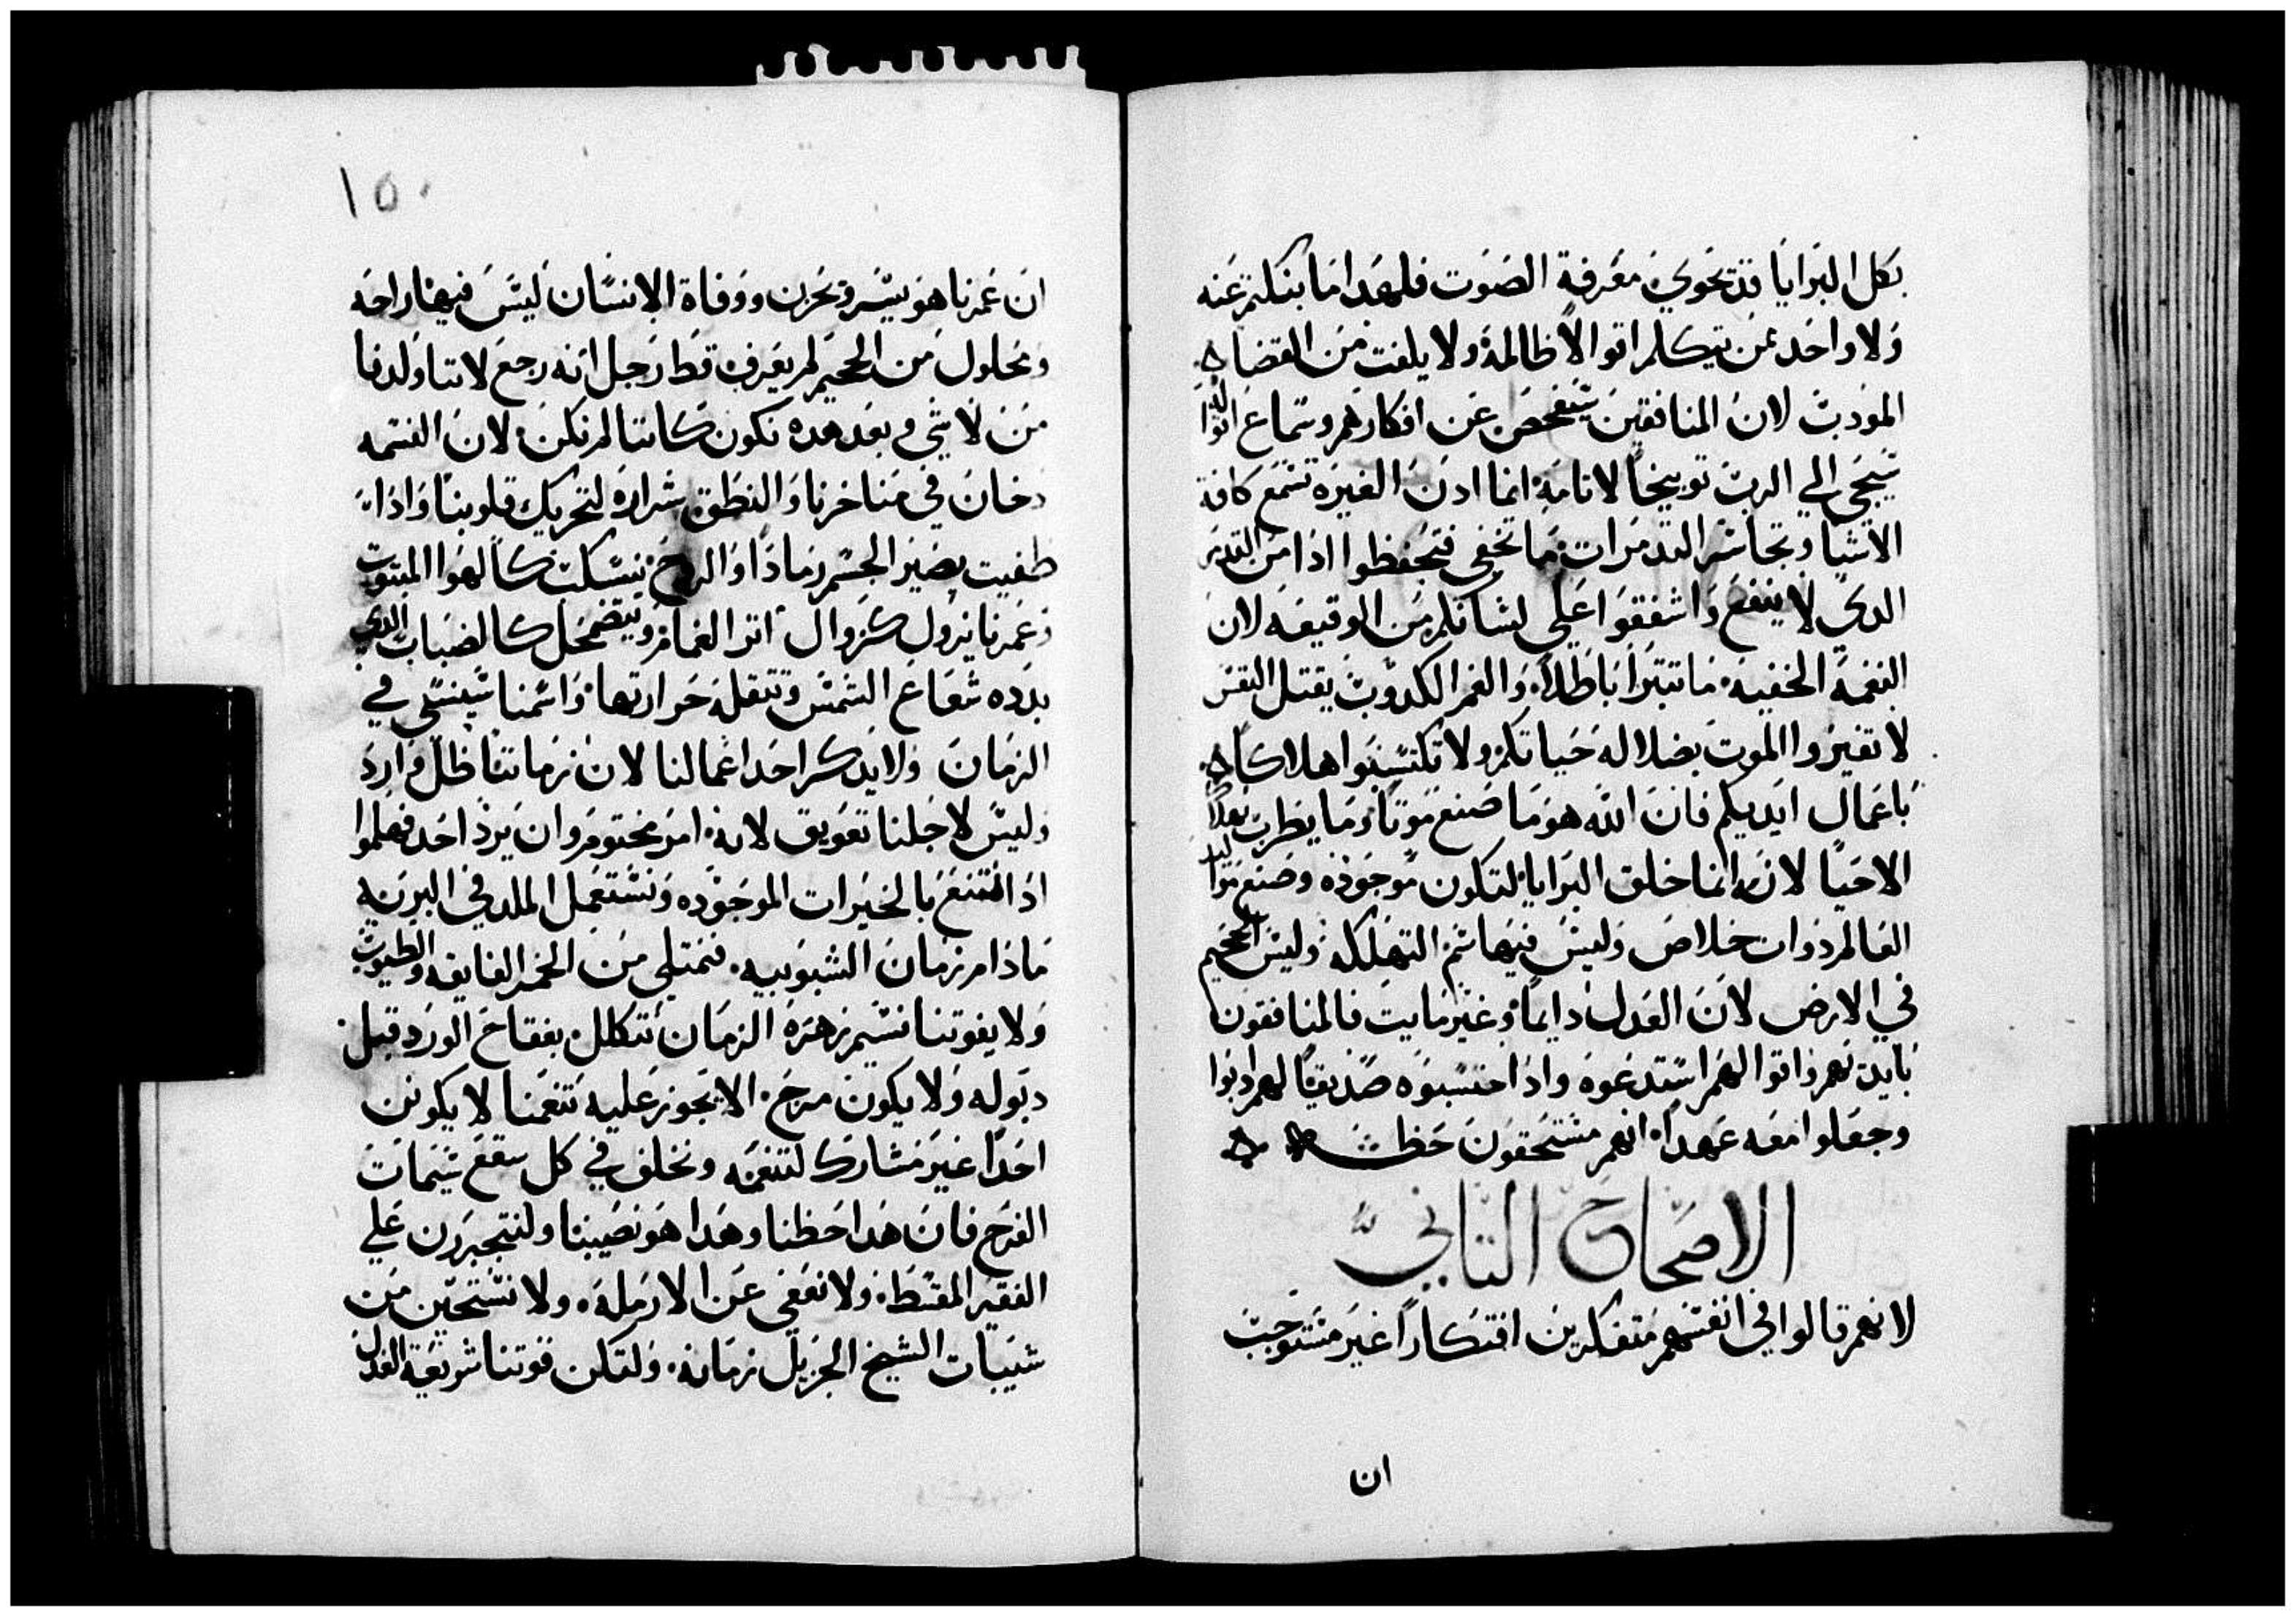 بكل البرايا قد تحوي معرفة الصوت فلهدا ما بنكتم عنه
ولا واحد ممن يتكلم اتوالا ظالمة ولا يلفت من القضا
المودب لان المنافقين سيفحص عن افكارهم وسماع
سيجي الي الرب توبيخا لاثامه انما ادن الغيره تسمع كافة
الاشيا وتجاسر التدمرات ما تخفي فتحفظوا ادا من التدمر
الدي لا ينفع واشفقوا علي لسانكم من الوقيعه لان
النغمة الخفيه ما تتبرا باطلا والفم الكدوب يقتل النفس
لا تغيروا الموت بضلاله حياتكم ولا تكتسبوا هلاكا
باعمال ايديكم فان الله هو ما صنع موتا وما يطرب بهلاك
الاحيا لانه انما خلق البرايا لتكون موجوده وصنع
العالم دوات خلاص وليس فيها سم التهلكه وليس الجحيم
في الارض لان العدل دايما وغير مايت فالمنافقون
بايديهم واتوالهم استدعوه وادا حتسبوه صديقا لهم
وجعلوا معه عهدا انهم مستحقون حظه
الاصحاح التاني
لانهم قالوا في انفسهم متفكرين افتكارا غير مستوجب
ان
١٥٠
ان عمرنا هو يسر وحزن ووفاة الانسان ليس فيها راحه
ومحلول من الجحيم لم يعرف قط رجل انه رجع لاننا ولدنا
من لا شي وبعد هده نكون كاننا لم نكن لان النسمه
دخان في مناخرنا والنطق شراره لتحريك قلوبنا وادا
طفيت يصير الجسم رمادا والروح ينسكب كالهوا المبتوت
وعمرنا يزول كزوال اتر الغمام ويضمحل كالضباب الدي
بدده شعاع الشمس وتتقله حرارتها واسمنا سينسي في
الزمان ولا يدكر احد اعمالنا لان زماننا ظل وارد
وليس لاجلنا تعويق لانه امر مختوم وان يرد احد فهلموا
ادا نتنعم بالخيرات الموجوده ونستعمل الملد في البريه
مادام زمان الشبوبيه فنمتلي من الخمر الفايقه والطيوب
ولا يفوتنا نسيم زهرة الزمان نتكلل بفقاح الورد قبل
دبوله ولا يكون مرج الا يجوز عليه تنعمنا لا يكونن
احدا غير مشارك لتنعمه ونخلف في كل سقع سيمات
الفرح فان هدا حظنا وهدا هو نصيبنا ولنتجبرن علي
الفقير المقسط ولا نعفي عن الارمله ولا نستحين من
شيبات الشيخ الجزيل زمانه ولتكن قوتنا شريعة العدل